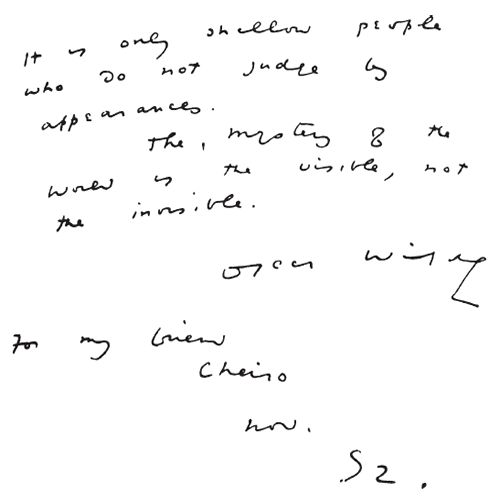 It is only shallow people
who do not judge by
appearances.
The mystery of the
world is the visible, not
the invisible.
Oscar Wilde
For my friend
Cheiro
Nov.
92.